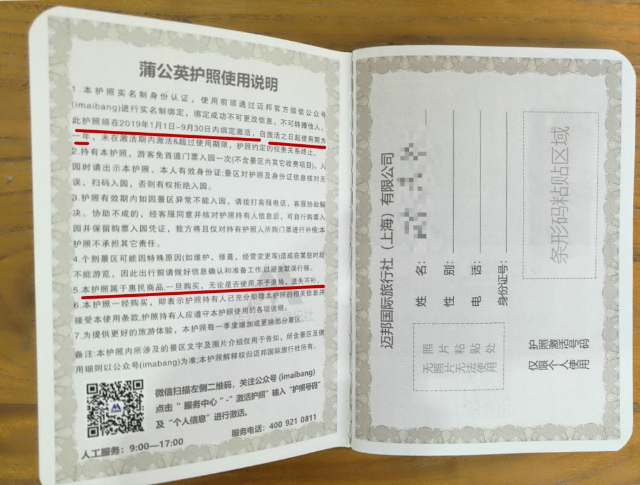 蒲公英护照使用说明
1.本护照实名制身份认证，使用前须通过迈邦官方微信公众号
(imaibang)进行实名制绑定，绑定成功不可更改信息，不可转赠他人。
此护照须在2019年1月1日-9月30日内绑定激活，自激活之日起使用期为
一年，未在激活期内激活&超过使用期限，护照约定的权责关系终止。
2.持有本护照，游客免首道门票入园一次(不含景区内其它收费项目)，入
园时请出示本护照、本人有效身份证;景区对护照及身份证信息核对无
误，扫码入园，否则有权拒绝入园。
3.护照有效期内如因景区异常不能入园，请拨打客服电话，客服协助解
决。协助不成的，经客服同意并核对护照持有人信息后，可自行购票入
园并保留购票入园凭证，我方将且仅对持有护照人所购门票进行补偿;本
护照不承担其它责任。
4.个别景区可能因特殊原因(如维护、修葺、经营变更等)造成在某些时段
不能游览，因此出行前请做好信息确认和准备工作,以避免耽误行程。
5.本护照属于惠民商品,一旦购买，无论是否使用,不予退换，遗失不补。
6.本护照一经购买，即表示护照持有人已充分知晓本护照的相关信息并
接受本使用条款,护照持有人应遵守本护照使用的各项说明。
7.为提供更好的旅游体验，本护照每一季度增加或更换部分景区。
备注:本护照内所涉及的景区文字及图片介绍仅用于告知，所含景区及使
用细则以公众号(imabang)为准;本护照解释权归迈邦国际旅行社所有。
微信扫描左侧二维码，关注公众号 (imaibang)
点击“服务中心”-“激活护照”输入“护照号码”
及“个人信息”进行激活。
人工服务：9:00—17:00
服务电话：400 921 0811
迈邦国际旅行社（上海）有限公司
姓 名：
性 别：
电 话：
身份证号：
照片粘贴处
无照片无法使用
条形码粘贴区域
护照激活号码
仅限个人使用